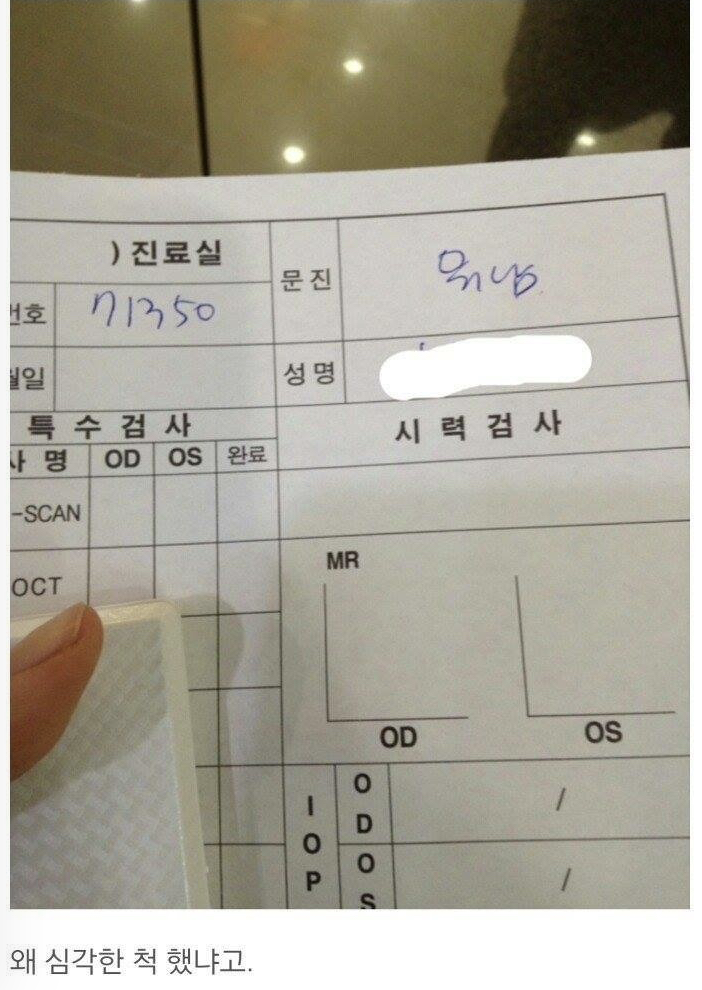 ) 진료실
문진
번호
71350
월일
성명
특수검사
시력검사
사 명 OD OS 완료
-SCAN
OCT
MR
OD
OS
IOP
OD
/
OS
/
왜 심각한 척 했냐고.